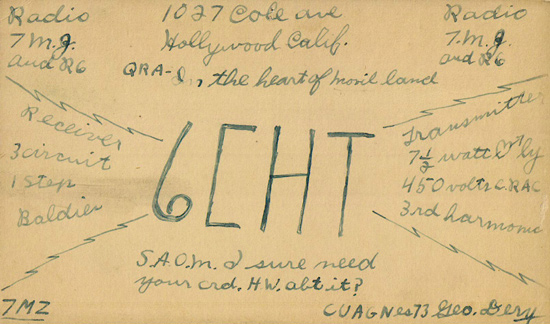 Radio
7 M.J.
and R6
1027 Cole ave
Hollywood Calif.
QRA- In the heart of movil land
Radio
7.M.J.
and R6
Receiver
3 circuit
1 Step
Baldies
6CHT
Transmitter
7 1/2 watt
450 volts C. RAC
3rd harmonic
S.A.O.M. I sure need
your crd. H.W. abt it?
7MZ
CUAGN es 73 Geo. Dery